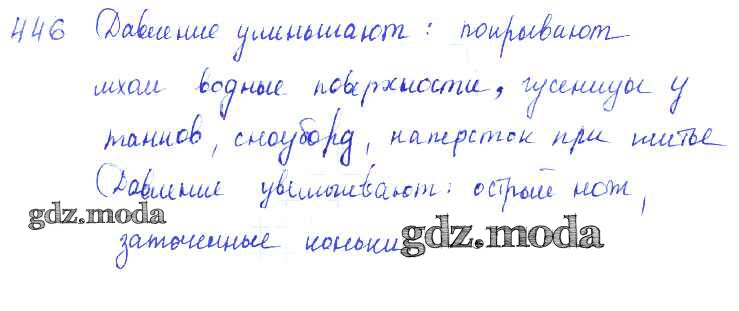 446 Давление уменьшают: покрывают
мхом водные поверхности, гусеницы у
танков, сноуборд, наперсток при шитье
Давление увеличивают: острый нож,
gdz.moda
заточенные коньки
gdz.moda